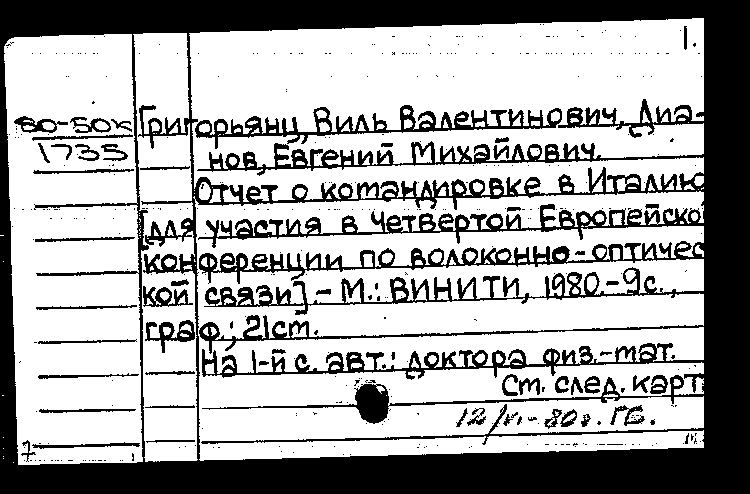 1.
80-50к Григорьянц, Виль Валентинович, Диа-
1735 нов, Евгений Михайлович.
Отчет о командировке в Италию
[для участия в Четвертой Европейской
конференции по волоконно-оптичес
кой связи].- М.: ВИНИТИ, 1980.-9с.,
граф.; 21см.
На 1-й с. авт.: доктора физ.-мат.
См. след. карт
12/VI-80г. ГБ.